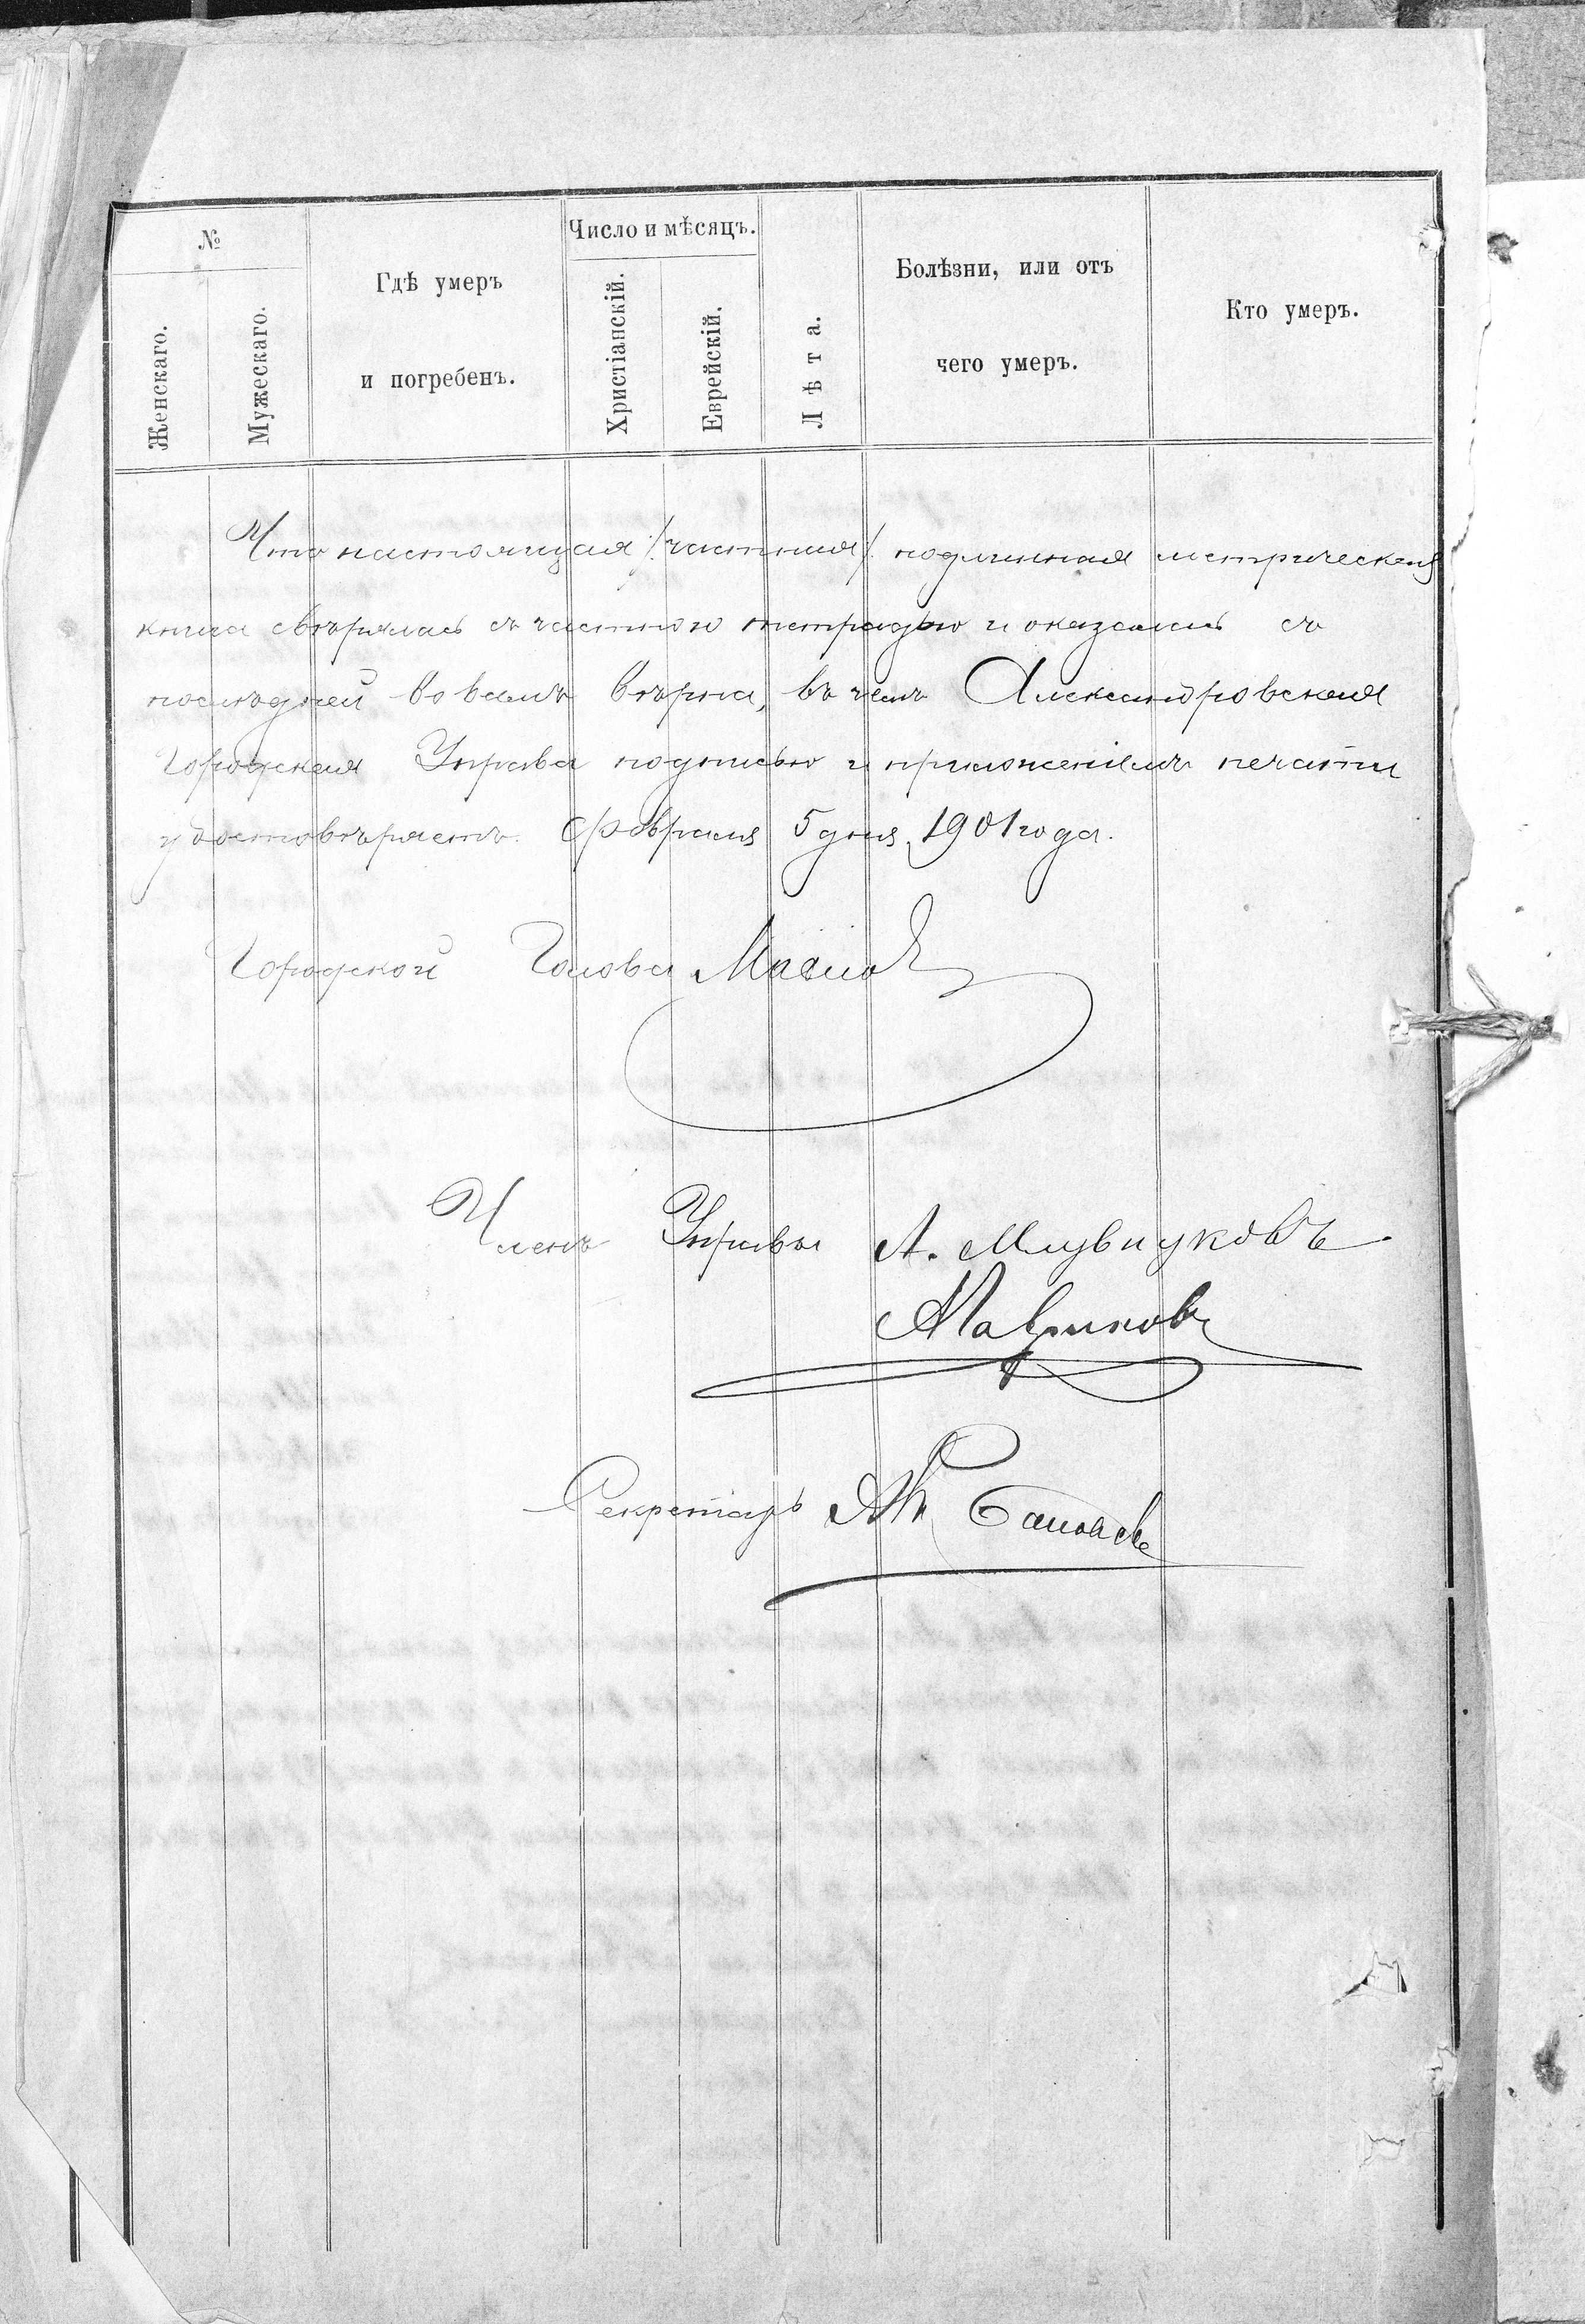 №
Женскаго.
Мужескаго.
Гдѣ умеръ
и погребенъ.
Число и мѣсяцъ.
Христіанскій.
Еврейскій.
Лѣта.
Болѣзни, или отъ
чего умеръ.
Кто умеръ.
Что настоящая /частная/ подлинная метрическая
книга свѣрялась съ частною тетрадью и оказалась съ
послѣдней во всемъ вѣрна, въ чемъ Александровская
Городская Управа подписью и приложеніемъ печати
удостовѣряетъ. Февраля 5 дня 1901 года.
Городской Голова
Членъ Управы А.
Секретарь